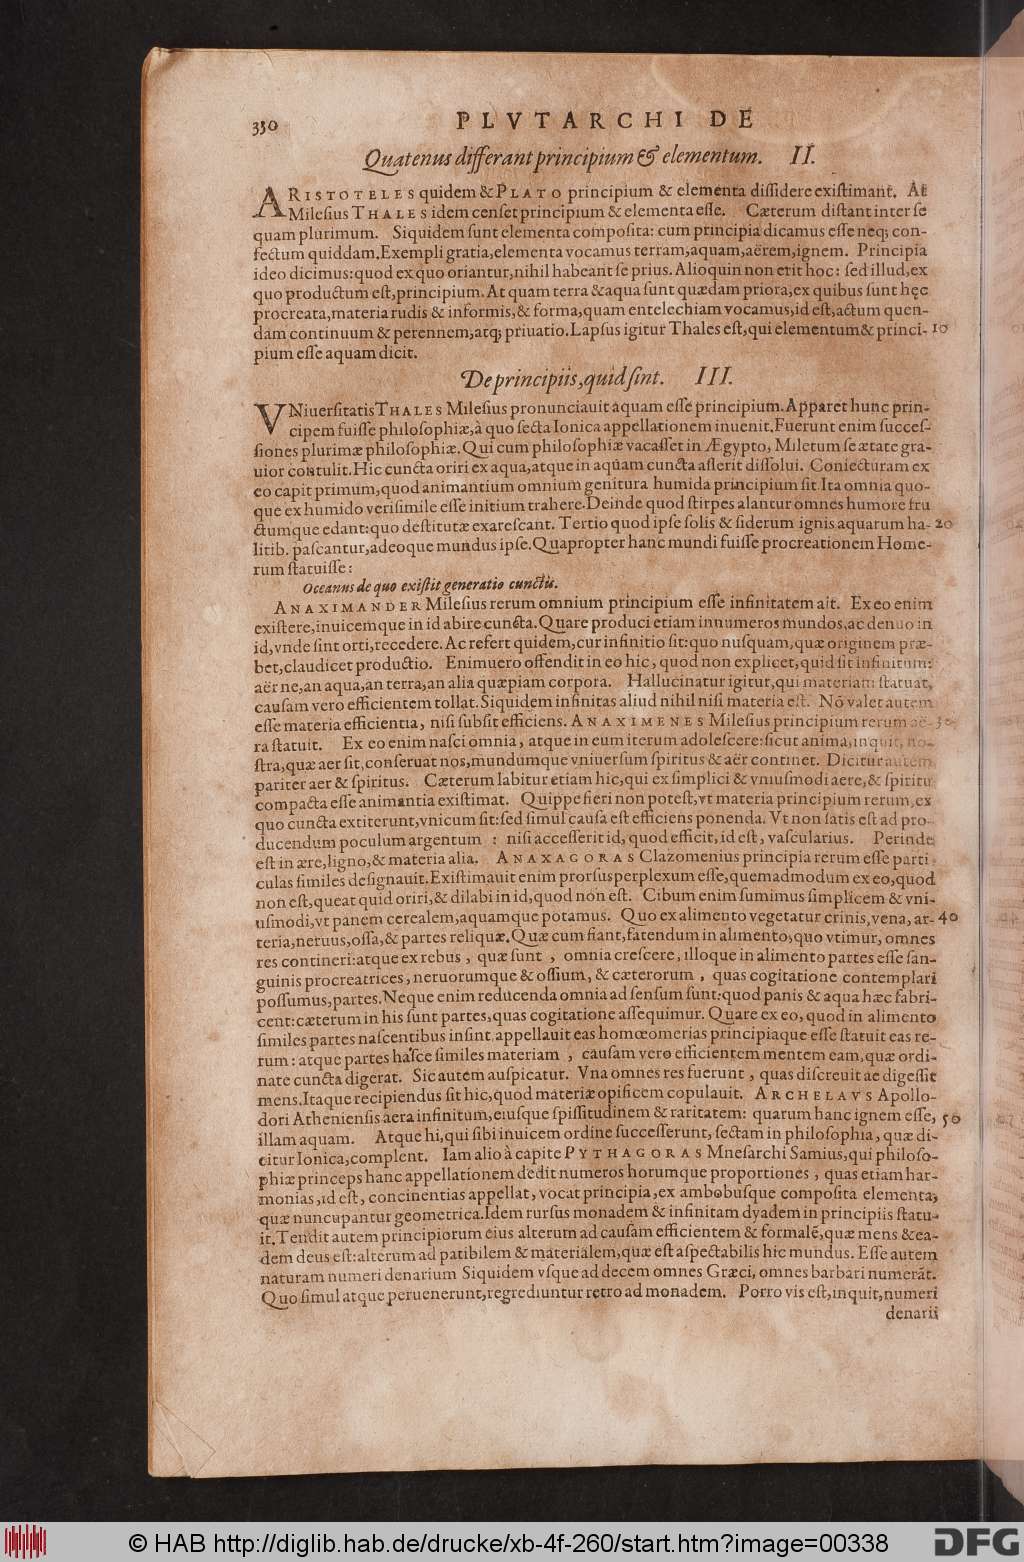 330
PLVTARCHI DE
Quatenus differant principium & elementum. II.
ARISTOTELES quidem & PLATO principium & elementa dissidere existimant. At
Milesius THALES idem censet principium & elementa esse. Cæterum distant inter se
quam plurimum. Siquidem sunt elementa composita: cum principia dicamus esse neq; con-
fectum quiddam. Exempli gratia, elementa vocamus terram, aquam, aërem, ignem. Principia
ideo dicimus: quod ex quo oriantur, nihil habeant se prius. Alioquin non erit hoc: sed illud, ex
quo productum est, principium. At quam terra & aqua sunt quædam priora, ex quibus sunt hęc
procreata, materia rudis & informis, & forma, quam entelechiam vocamus, id est, actum quen-
dam continuum & perennem, atq; priuatio. Lapsus igitur Thales est, qui elementum & princi- 10
pium esse aquam dicit.
De principiis, quid sint. III.
VNiuersitatis THALES Milesius pronunciauit aquam esse principium. Apparet hunc prin-
cipem fuisse philosophiæ, à quo secta Ionica appellationem inuenit. Fuerunt enim succes-
siones plurimæ philosophiæ. Qui cum philosophiæ vacasset in Ægypto, Miletum se ætate gra-
uior contulit. Hic cuncta oriri ex aqua, atque in aquam cuncta asserit dissolui. Coniecturam ex
eo capit primum, quod animantium omnium genitura humida principium sit. Ita omnia quo-
que ex humido verisimile esse initium trahere. Deinde quod stirpes alantur omnes humore fru
ctumque edant: quo destitutæ exarescant. Tertio quod ipse solis & siderum ignis aquarum ha- 20
litib. pascantur, adeoque mundus ipse. Quapropter hanc mundi fuisse procreationem Home-
rum statuisse:
Oceanus de quo existit generatio cunctis.
ANAXIMANDER Milesius rerum omnium principium esse infinitatem ait. Ex eo enim
existere, inuicemque in id abire cuncta. Quare produci etiam innumeros mundos, ac denuo in
id, vnde sint orti, recedere. Ac refert quidem, cur infinitio sit: quo nusquam, quæ originem præ-
bet, claudicet productio. Enimuero offendit in eo hic, quod non explicet, quid sit infinitum:
aër ne, an aqua, an terra, an alia quæpiam corpora. Hallucinatur igitur, qui materiam statuat,
causam vero efficientem tollat. Siquidem infinitas aliud nihil nisi materia est. Nō valet autem
esse materia efficientia, nisi subsit efficiens. ANAXIMENES Milesius principium rerum aë- 30
ra statuit. Ex eo enim nasci omnia, atque in eum iterum adolescere: sicut anima, inquit, no-
stra, quæ aer sit, conseruat nos, mundumque vniuersum spiritus & aër continet. Dicitur autem
pariter aer & spiritus. Cæterum labitur etiam hic, qui ex simplici & vniusmodi aere, & spiritu
compacta esse animantia existimat. Quippe fieri non potest, vt materia principium rerum, ex
quo cuncta extiterunt, vnicum sit: sed simul causa est efficiens ponenda. Vt non satis est ad pro-
ducendum poculum argentum: nisi accesserit id, quod efficit, id est, vascularius. Perinde
est in ære, ligno, & materia alia. ANAXAGORAS Clazomenius principia rerum esse parti
culas similes designauit. Existimauit enim prorsus perplexum esse, quemadmodum ex eo, quod
non est, queat quid oriri, & dilabi in id, quod non est. Cibum enim sumimus simplicem & vni-
usmodi, vt panem cerealem, aquamque potamus. Quo ex alimento vegetatur crinis, vena, ar- 40
teria, neruus, ossa, & partes reliquæ. Quæ cum fiant, fatendum in alimento, quo vtimur, omnes
res contineri: atque ex rebus, quæ sunt, omnia crescere, illoque in alimento partes esse san-
guinis procreatrices, neruorumque & ossium, & cæterorum, quas cogitatione contemplari
possumus, partes. Neque enim reducenda omnia ad sensum sunt: quod panis & aqua hæc fabri-
cent: cæterum in his sunt partes, quas cogitatione assequimur. Quare ex eo, quod in alimento
similes partes nascentibus insint, appellauit eas homœomerias principiaque esse statuit eas re-
rum: atque partes hasce similes materiam, causam vero efficientem mentem eam, quæ ordi-
nate cuncta digerat. Sic autem auspicatur. Vna omnes res fuerunt, quas discreuit ac digessit
mens. Itaque recipiendus sit hic, quod materiæ opificem copulauit. ARCHELAVS Apollo-
dori Atheniensis aera infinitum, eiusque spissitudinem & raritatem: quarum hanc ignem esse, 50
illam aquam. Atque hi, qui sibi inuicem ordine successerunt, sectam in philosophia, quæ di-
citur Ionica, complent. Iam alio à capite PYTHAGORAS Mnesarchi Samius, qui philoso-
phiæ princeps hanc appellationem dedit numeros horumque proportiones, quas etiam har-
monias, id est, concinentias appellat, vocat principia, ex ambobusque composita elementa,
quæ nuncupantur geometrica. Idem rursus monadem & infinitam dyadem in principiis statu-
it. Tendit autem principiorum eius alterum ad causam efficientem & formalē, quæ mens & ea-
dem deus est: alterum ad patibilem & materialem, quæ est aspectabilis hic mundus. Esse autem
naturam numeri denarium Siquidem vsque ad decem omnes Græci, omnes barbari numerāt.
Quo simul atque peruenerunt, regrediuntur retro ad monadem. Porro vis est, inquit, numeri
denarii
© HAB http://diglib.hab.de/drucke/xb-4f-260/start.htm?image=00338
DFG